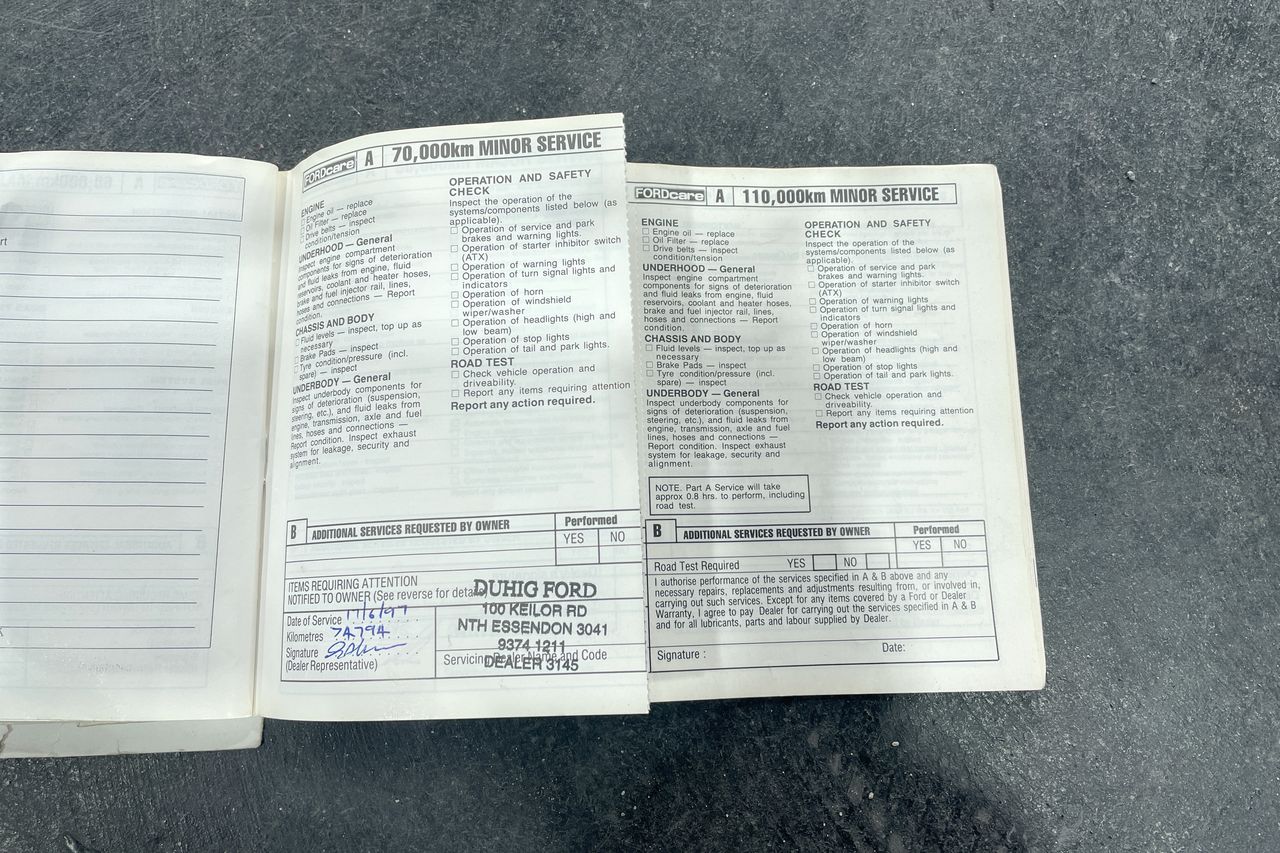 rt
FORDcare A 70,000km MINOR SERVICE
ENGINE
☐ Engine oil — replace
☐ Oil Filter — replace
☐ Drive belts — inspect
condition/tension
UNDERHOOD — General
Inspect engine compartment
components for signs of deterioration
and fluid leaks from engine, fluid
reservoirs, coolant and heater hoses,
brake and fuel injector rail, lines,
hoses and connections — Report
condition.
CHASSIS AND BODY
☐ Fluid levels — inspect, top up as
necessary
☐ Brake Pads — inspect
☐ Tyre condition/pressure (incl.
spare) — inspect
UNDERBODY — General
Inspect underbody components for
signs of deterioration (suspension,
steering, etc.), and fluid leaks from
engine, transmission, axle and fuel
lines, hoses and connections —
Report condition. Inspect exhaust
system for leakage, security and
alignment.
OPERATION AND SAFETY
CHECK
Inspect the operation of the
systems/components listed below (as
applicable).
☐ Operation of service and park
brakes and warning lights.
☐ Operation of starter inhibitor switch
(ATX)
☐ Operation of warning lights
☐ Operation of turn signal lights and
indicators
☐ Operation of horn
☐ Operation of windshield
wiper/washer
☐ Operation of headlights (high and
low beam)
☐ Operation of stop lights
☐ Operation of tail and park lights.
ROAD TEST
☐ Check vehicle operation and
driveability.
☐ Report any items requiring attention
Report any action required.
B ADDITIONAL SERVICES REQUESTED BY OWNER Performed
YES NO
ITEMS REQUIRING ATTENTION
NOTIFIED TO OWNER (See reverse for details)
Date of Service 17/6/97
Kilometres 74794
Signature
(Dealer Representative)
DUHIG FORD
100 KEILOR RD
NTH ESSENDON 3041
9374 1211
Servicing Dealer Name and Code
DEALER 3145
FORDcare A 110,000km MINOR SERVICE
ENGINE
☐ Engine oil — replace
☐ Oil Filter — replace
☐ Drive belts — inspect
condition/tension
UNDERHOOD — General
Inspect engine compartment
components for signs of deterioration
and fluid leaks from engine, fluid
reservoirs, coolant and heater hoses,
brake and fuel injector rail, lines,
hoses and connections — Report
condition.
CHASSIS AND BODY
☐ Fluid levels — inspect, top up as
necessary
☐ Brake Pads — inspect
☐ Tyre condition/pressure (incl.
spare) — inspect
UNDERBODY — General
Inspect underbody components for
signs of deterioration (suspension,
steering, etc.), and fluid leaks from
engine, transmission, axle and fuel
lines, hoses and connections —
Report condition. Inspect exhaust
system for leakage, security and
alignment.
OPERATION AND SAFETY
CHECK
Inspect the operation of the
systems/components listed below (as
applicable).
☐ Operation of service and park
brakes and warning lights.
☐ Operation of starter inhibitor switch
(ATX)
☐ Operation of warning lights
☐ Operation of turn signal lights and
indicators
☐ Operation of horn
☐ Operation of windshield
wiper/washer
☐ Operation of headlights (high and
low beam)
☐ Operation of stop lights
☐ Operation of tail and park lights.
ROAD TEST
☐ Check vehicle operation and
driveability.
☐ Report any items requiring attention
Report any action required.
NOTE. Part A Service will take
approx 0.8 hrs. to perform, including
road test.
B ADDITIONAL SERVICES REQUESTED BY OWNER Performed
YES NO
Road Test Required YES NO
I authorise performance of the services specified in A & B above and any
necessary repairs, replacements and adjustments resulting from, or involved in,
carrying out such services. Except for any items covered by a Ford or Dealer
Warranty, I agree to pay Dealer for carrying out the services specified in A & B
and for all lubricants, parts and labour supplied by Dealer.
Signature : Date: